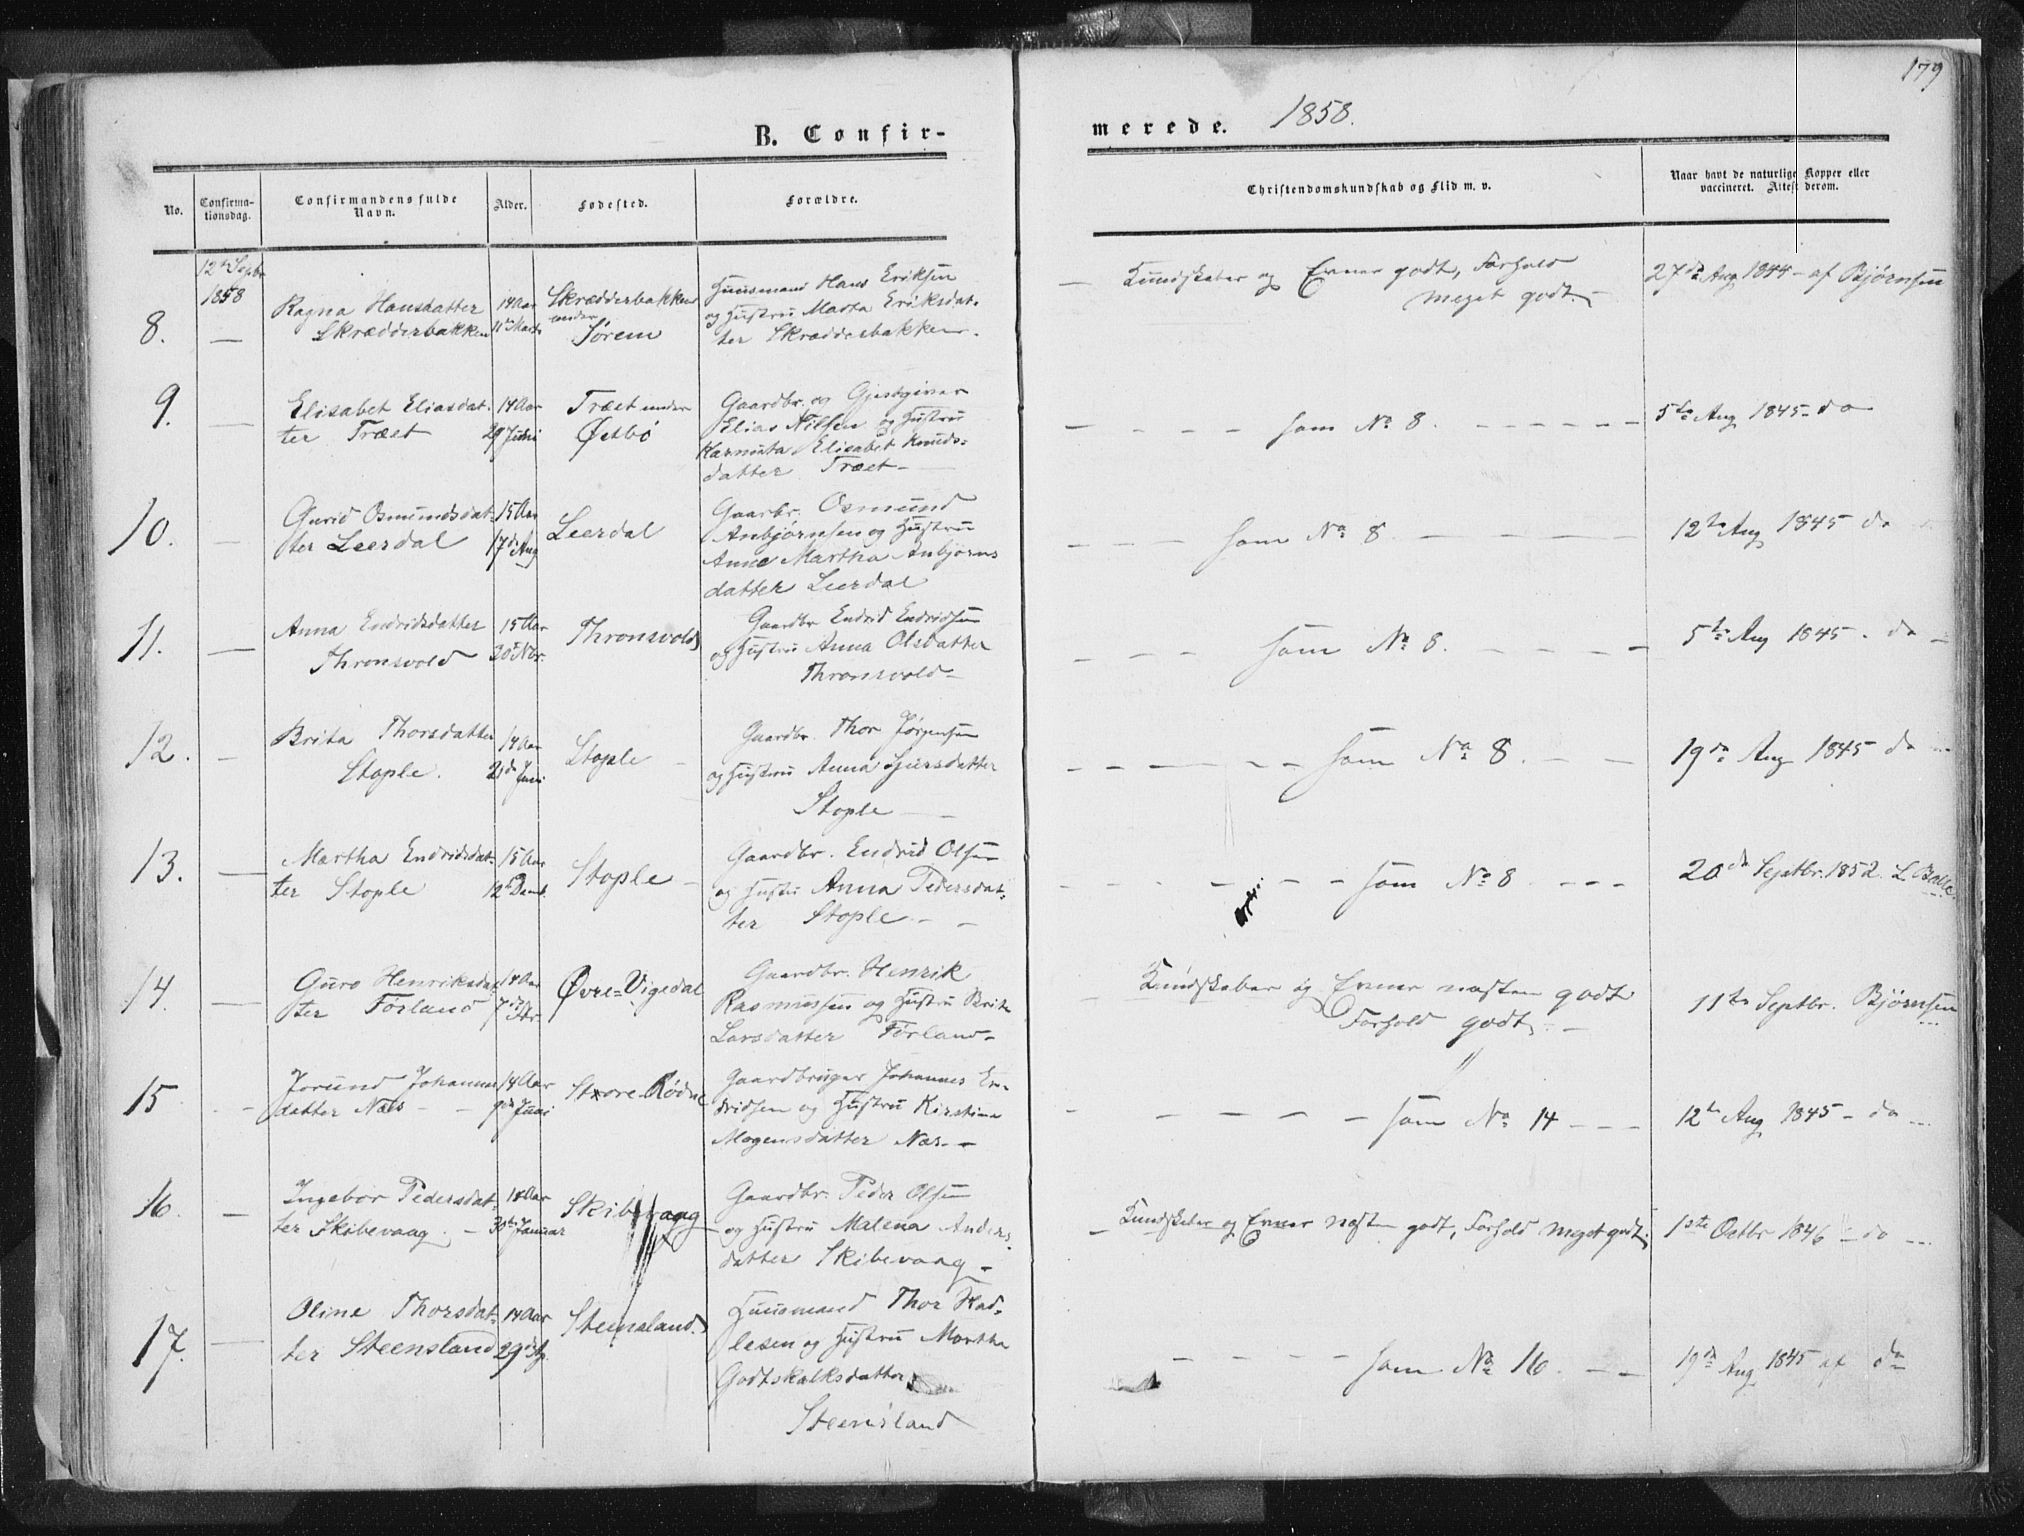 179
B. Confir-
merede. 1858.
No.
Confirma-
tionsdag.
Confirmandens fulde
Navn.
Alder.
Fødested.
Forældre.
Christendomskundskab og Flid m. v.
Naar havt de naturlige Kopper eller
vaccineret. Attest derom.
12te Septbr
1858
8. —
Ragna Hansdatter
Skrædderbakken
14 Aar
11te Marts
Skrædderbakken
under
Sørem
Huusmand Hans Eriksen
og Hustru Marta Eriksdat-
ter Skrædderbakken.
— Kundskaber og Evner godt, Forhold
meget godt. —
27de Aug 1844 – af Bjørnsen
9. —
Elisabet Eliasdat-
ter Træet
14 Aar
29 Juni
Træet under
Østbö
Gaardbr. og Gjestgiver
Elias Nilsen og Hustru
Elisabet Knuds=
datter Træet —
— — — — som No 8. — — — — — —
5te Aug 1845 – do
10. —
Gurid Osmundsdat-
ter Leerdal
15 Aar
17de Aug
Leerdal
Gaarbr. Osmund
Anbjørnsen og Hustru
Anne Martha Anbjørns
datter Leerdal
— — — — som No 8. — — — — —
12te Aug 1845 do
11. —
Anna Endridsdatter
Thronsvold
15 Aar
30te Nbr.
Thronsvold
Gaardbr Endrid Endridsen
og Hustru Anna Olsdatter
Thronsvold —
— — — som No 8. — — — — —
5te Aug 1845 . do —
12. —
Brita Thorsdatter
Stople.
14 Aar
Juni
Stople —
Gaardbr. Thor Jørgensen
og Hustru Anna Sjursdatter
Stople —
— — — — — som No 8. — —
19de Aug 1845 do —
13. —
Martha Endridsdat-
ter Stople
15 Aar
12te Decemb.
Stople —
Gaardbr. Endrid Olsen
og Hustru Anna Pedersdat-
ter Stople. — —
— — — — — — som No 8 . — — —
20de Septbr. 1852. L Balle
14. —
Guro Henriksdat
ter Førland
14 Aar
7de
Øvre=Vigedal
Gaardbr. Henrik
Rasmussen og Hustru Brita
Larsdatter Førland —
Kundskaber og Evner næsten godt
Forhold godt. —
11te Septbr. Bjørnsen
15 — —
Jorund Johannes
datter Næs — —
14 Aar
9de Juni
Store-Rödne
Gaardbruger Johannes En-
dridsen og Hustru Kirstine
Mogensdatter Næs. —
— — — — — som No 14 — — —
12te Aug 1845 – do —
16. —
Ingebor Pedersdat-
ter Skibevaag. —
Aar
30te Januar
Skibevaag
Gaardbr. Peder Olsen
og Hustru Malena Anders-
datter Skibevaag —
— Kundskaber og Evner næsten godt, Forhold meget godt.
1ste Octbr 1846 – do —
17. —
Oline Thorsdat-
ter Steensland
14 Aar
Steensland.
Huusmand Thor Had-
lesen og Hustru Martha
Godtskalksdatter
Steensland
— — — — som No 16. — —
19de Aug 1845 af do